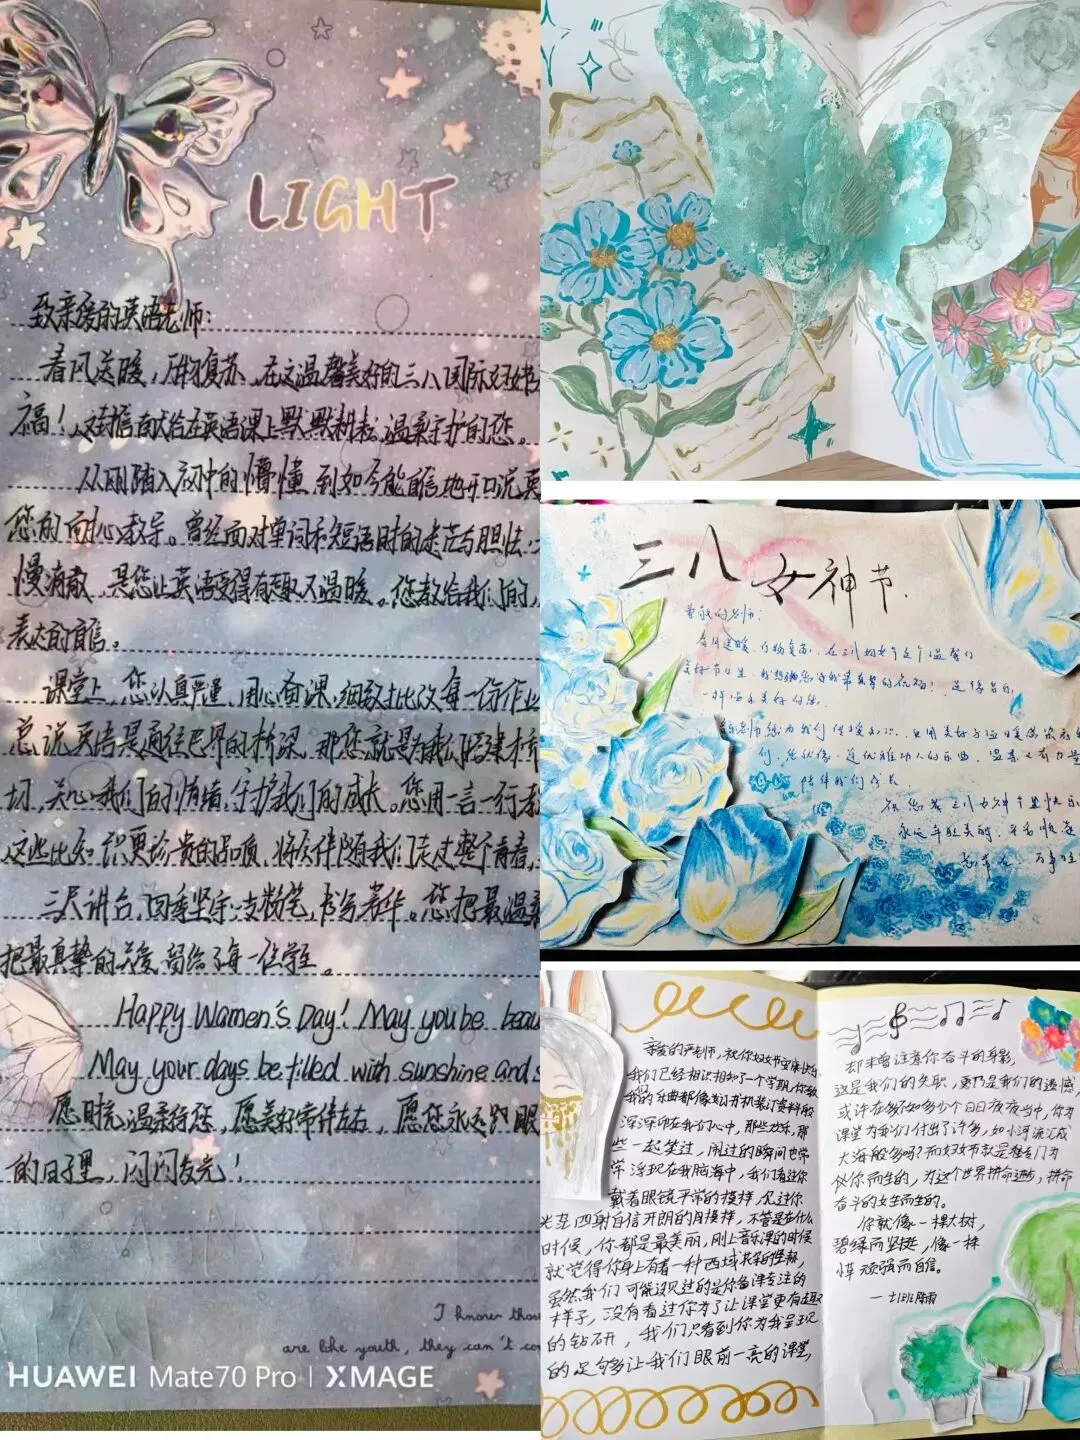 LIGHT
致亲爱的英语老师:
春风送暖,万物复苏,在这温馨美好的三八国际妇女
福!这封信献给在英语课上默默耕耘、温柔守护的您。
从刚踏入初中的懵懂,到如今能自信地开口说英
您的耐心教导。曾经面对单词和短语时的迷茫与胆怯,
慢消散,是您让英语变得有趣又温暖。您教给我们的,
表达的自信。
课堂上,您认真严谨,用心备课,细致批改每一份作业
总说英语是通往世界的桥梁,那您就是为我们搭建桥
切,关心我们的情绪,守护我们的成长。您用一言一行
这些比知识更珍贵的品质,将会伴随我们走过整个青春,
三尺讲台,四季坚守;一支粉笔,书写芳华。您把最温柔
把最真挚的关爱,留给了每一位学生。
Happy Women's Day! May you be beau
May your days be filled with sunshine and s
愿时光温柔待您,愿美好常伴左右,愿您永远
的日子里,闪闪发光!
I know thos
are like youth, they can't co
HUAWEI Mate70 Pro | XMAGE
三八女神节.
尊敬的老师:
春风送暖,万物复苏,在三八妇女节这个温馨的
美好节日里,我想
老师您为我们传授知识,
陪伴我们成长
祝您在三八女神节里快乐
永远年轻美丽,平安顺遂
亲爱的严老师,祝你妇女节安康快乐
我们已经相识相知了一个学期,你教
我的乐曲都像装订书机装订资料般
深深印在我们心中,那些欢乐,那
些一起笑过,闹过的瞬间也常
常浮现在我脑海中,我们看过你
戴着眼镜平常的模样,见过你
光芒四射自信开朗的月模样,不管是在什么
时候,你都是最美丽,刚上音乐课的时候
就觉得你身上有着一种西域
虽然我们可能没见过的是你备课专注的
样子,没有看过你为了让课堂更有趣
的钻研,我们只看到你为我呈现
的足够多让我们眼前一亮的课堂,
却未曾注意你奋斗的身影,
这是我们的失职,更乃是我们的遗憾
或许在多不知多少个日日夜夜当中,你为
课堂为我们付出了许多,如小河流汇成
大海般多吗?而妇女节就是想专门为
伙你而生的,为这个世界拼命进步,拼命
奋斗的女生而生的。
你就像一棵大树,
碧绿而坚挺,像一株
草顽强而自信。